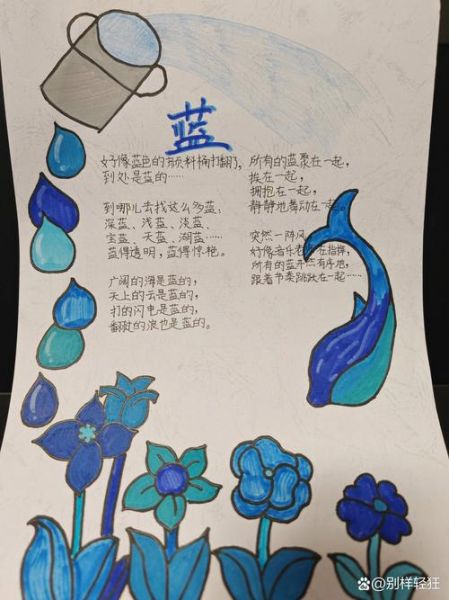 蓝
好像蓝色的颜料桶打翻了,
到处是蓝的……
到哪儿去找这么多蓝:
深蓝、浅蓝、淡蓝、
宝蓝、天蓝、湖蓝……
蓝得透明,蓝得惊艳。
广阔的海是蓝的,
天上的云是蓝的,
打的闪电是蓝的,
翻腾的浪也是蓝的。
所有的蓝聚在一起,
挨在一起,
拥抱在一起,
静静地舞动在一起。
突然一阵风,
好像音乐老 在指挥,
所有的蓝 有序地,
跟着节奏跳跃在一起……
百家号/别样轻狂